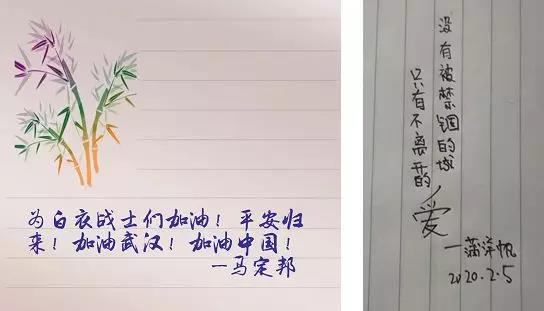 为白衣战士们加油！平安归
来！加油武汉！加油中国！
—马定邦
没有被禁锢的城
只有不离开的
爱
—蒲洋帆
2020.2.5